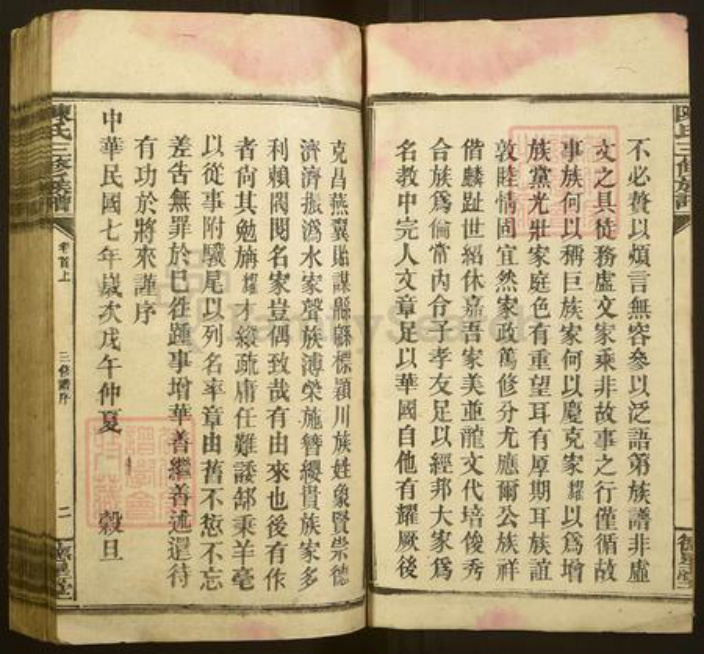 不必贅以煩言無容參以泛語第族譜非虛
文之具徒務虛文家乘非故事之行僅循故
事族何以稱巨族家何以慶克家耀以爲增
族黨光壯家庭色有重望耳有厚期耳族誼
敦睦情固宜然家政萬修分尤應爾公族祥
偕麟趾世紹休嘉吾家美並龍文代培俊秀
合族爲倫常內令子孝友足以經邦大家爲
名教中完人文章足以華國自他有耀厥後
克昌燕翼貽謀縣縣標潁川族姓象賢崇德
濟濟振溈水家聲族溥榮施簪纓貴族家多
利賴閥閱名家豈偶致哉有由來也後有作
者尚其勉旃耀才縱疏庸任難諉郜乘羊毫
以從事附驥尾以列名率章由舊不愆不忘
差告無罪於已往踵事增華善繼善述還待
有功於將來謹序
中華民國七年歲次戊午仲夏 穀旦
陳氏三修族譜
卷首上
三修譜序
二
陳氏三修族譜